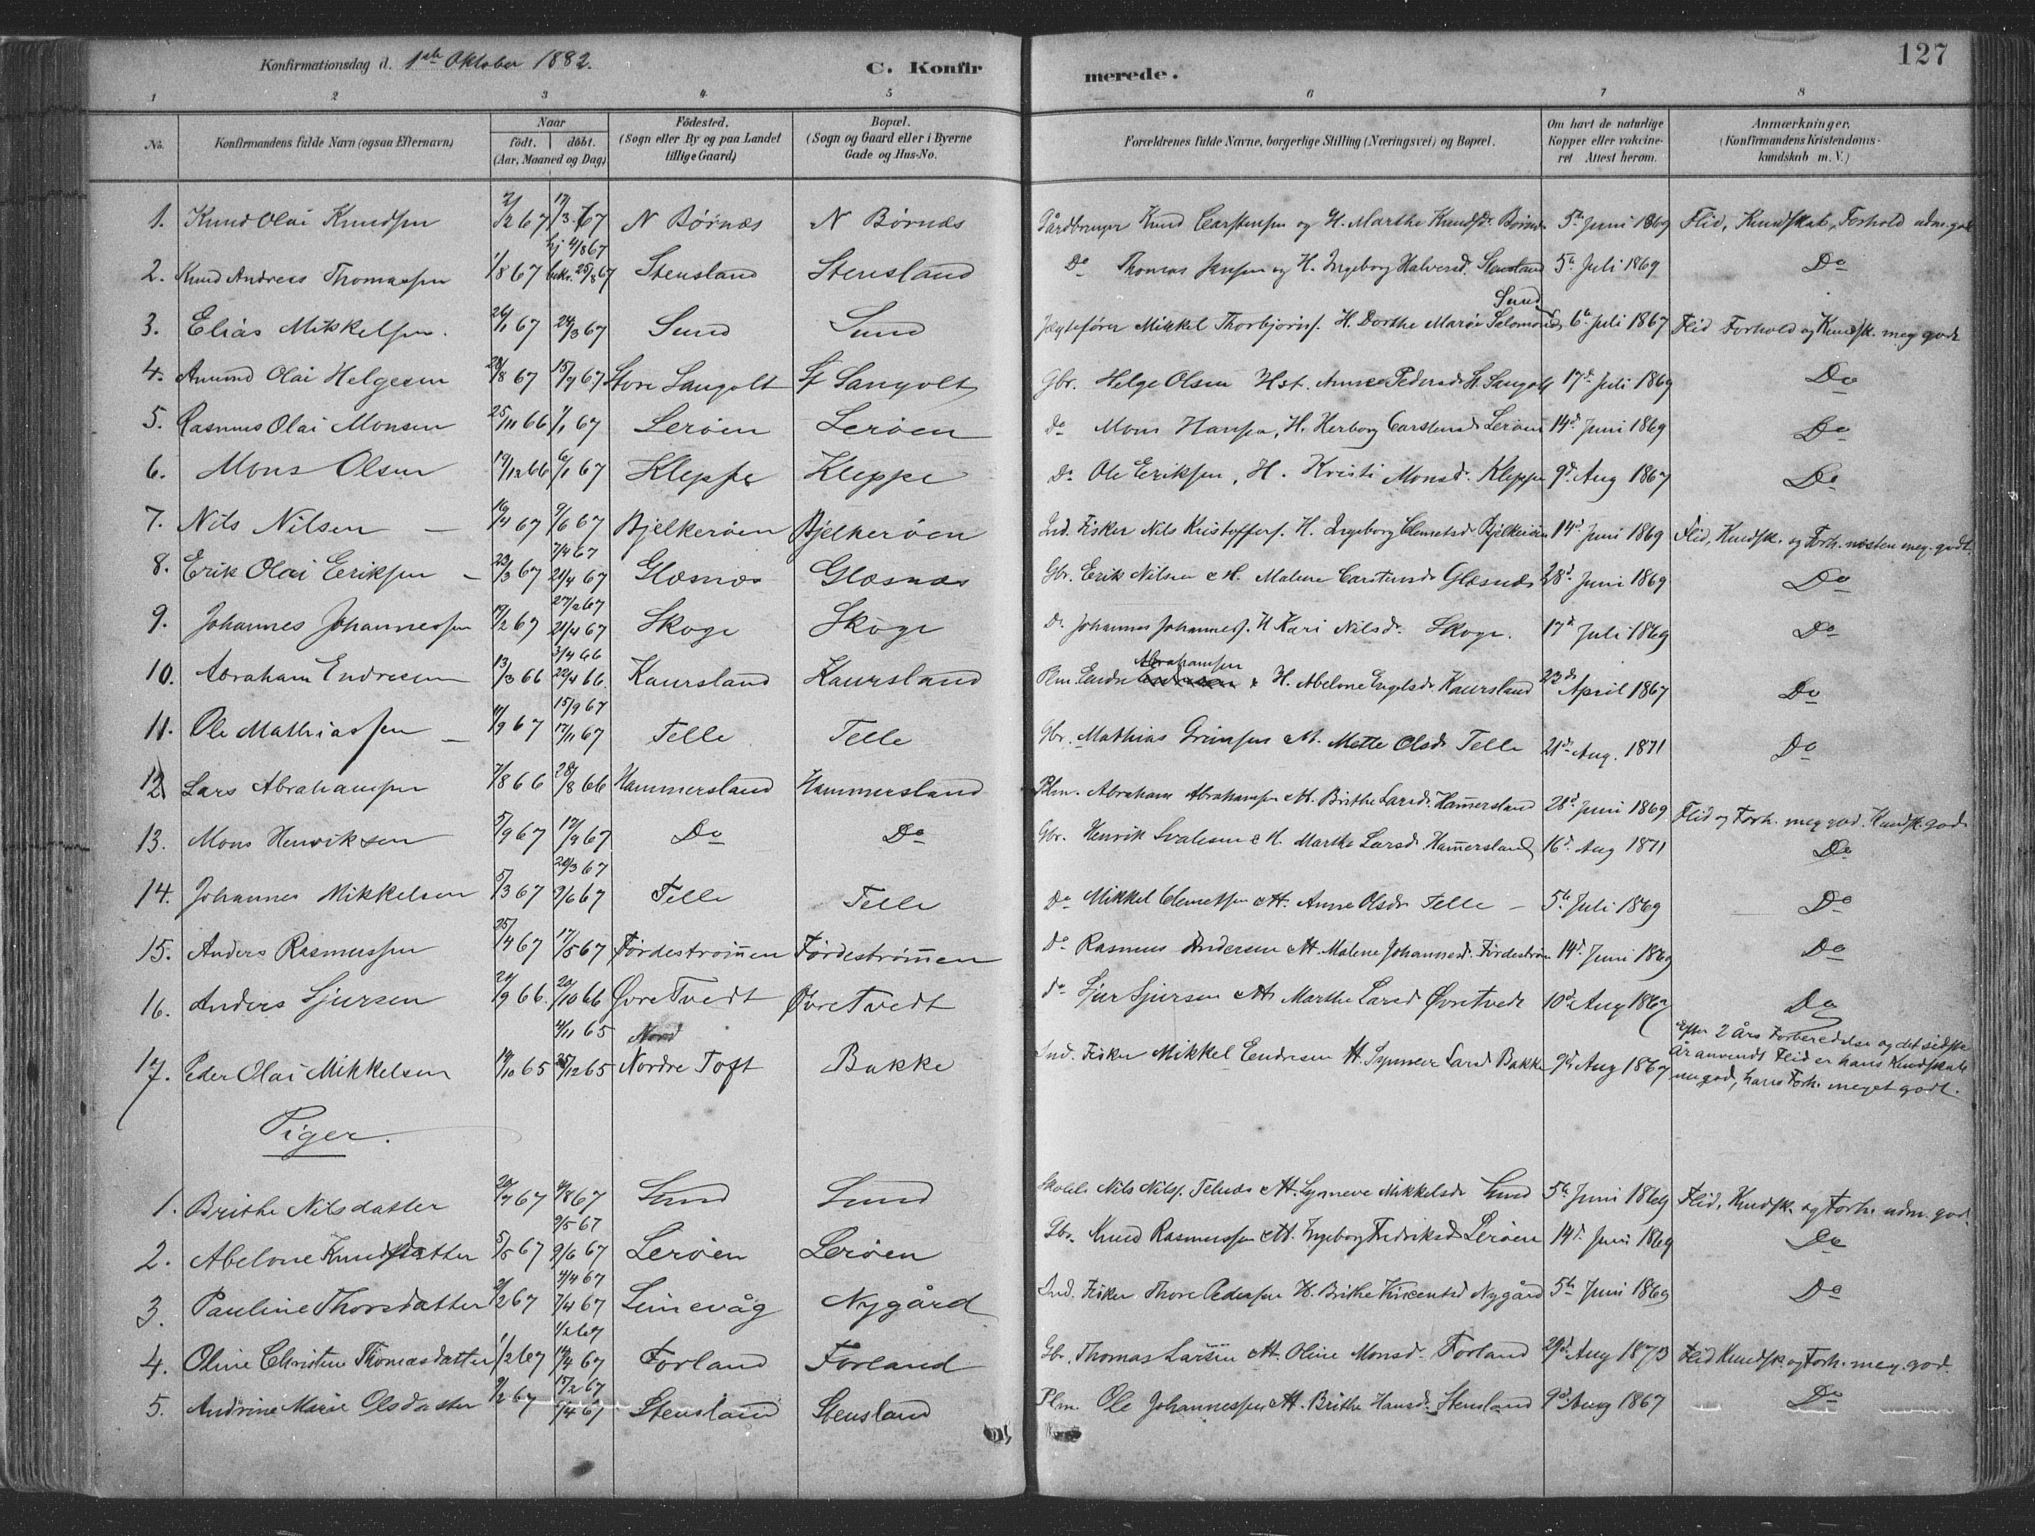 127
Konfirmationsdag d. 1ste Oktober 1882. C. Konfirmerede.
1 2 3 4 5 6 7 8
No. Konfirmandens fulde Navn (ogsaa Efternavn) Naar født. døbt. (Aar, Maaned og Dag) Fødested. (Sogn eller By og paa Landet tillige Gaard) Bopæl. (Sogn og Gaard eller i Byerne Gade og Hus-No. Forældrenes fulde Navne, borgerlige Stilling (Næringsvei) og Bopæl. Om havt de naturlige Kopper eller vakcineret Attest herom. Anmærkninger. (Konfirmandens Kristendomskundskab m. V.)
1. Knud Olai Knudsen 2/2 67 17/3 67 N Børnæs N Børnæs Gårdbruger Knud Carstensen og H. Marthe Knudsd. 5te Juni 1869 Flid, Kundskab, Forhold udm. god
2. Knud Andreas Thomassen 1/8 67 hj 4/8 67 bekr. 25/8 67 Stensland Stensland Do Thomas Jensen og H. Ingeborg Halversd. Stensland 5te Juli 1869 Do
3. Elias Mikkelsen. 26/1 67 24/3 67 Sund Sund Jægtefører Mikkel Thorbjørns. H. Dorthe Marie Salomonsd Sund 6te Juli 1867 Flid Forhold og Kundsk. meg. gode
4. Amund Olai Helgesen 28/8 67 15/9 67 Store Sangolt St Sangolt Gbr. Helge Olsen Hst. Anne Pedersd St. Sangolt 17de Juli 1869 Do
5. Rasmus Olai Monsen 25/11 66 1/1 67 Lerøen Lerøen Do Mons Hansen, H. Herborg Carstensd Lerøen 14d Juni 1869 Do
6. Mons Olsen 19/12 66 6/1 67 Kleppe Kleppe Do Ole Eriksen, H. Kristi Monsd. Kleppe 9d. Aug 1867 Do
7. Nils Nilsen 16/4 67 9/6 67 Bjelkerøen Bjelkerøen Ind. Fisker Nils Kristoffers. H. Ingeborg Clemetsd Bjelkerøen 14d Juni 1869 Flid, Kundsk. og Forh. næsten meg. godt.
8. Erik Olai Eriksen 23/3 67 7/4 67 21/4 67 Glæsnæs Glæsnæs Gbr. Erik Nilsen & H. Malene Carstensd Glæsnæs 28d. Juni 1869 Do
9. Johannes Johannessen 17/2 67 27/2 67 21/4 67 Skoge Skoge Do Johannes Johanness. H Kari Nilsd. Skoge. 17d Juli 1869 Do
10. Abraham Endresen 13/3 66 3/4 66 22/4 66. Kaursland Kaursland Plm. Endre Abrahamsen & H. Abelone Engelsd. Kaursland 23de April 1867 Do
11. Ole Mathiassen 11/9 67 15/9 67 17/11 67 Telle Telle Gbr. Mathias Grimsen & H. Mette Olsd. Telle 21de Aug. 1871 Do
12 Lars Abrahamsen 7/8 66 26/8 66 Hammersland Hammersland Plm. Abraham Abrahamsen & H. Brithe Larsd. Hamersland 28d Juni 1869 Flid og Forh. meg. god. Kundsk. god
13. Mons Henriksen 5/9 67 17/9 67 Do Do Gbr. Henrik & H. Marthe Larsd. Hamersland 16d. Aug 1871 Do
14. Johannes Mikkelsen 5/3 67 20/3 67 9/6 67 Telle Telle Do Mikkel Clemetsen & H. Anne Olsdr Telle 5te Juli 1869 Do
15. Anders Rasmussen 25/4 67 17/5 67 Førdestrømen Førdestrømen Do Rasmus Andersen & H. Malene Johannesd. Førdestrøm 14d. Juni 1869 Do
16. Anders Sjursen 24/9 66. 20/10 66 Øvre Tvedt Øvre Tvedt do Sjur Sjursen & H. Marthe Larsd Øvre Tvedt 10de Aug 1867 Do
17. Peder Olai Mikkelsen 14/10 65 4/11 65 26/12 65 Nord Nordre Toft Bakke Ind. Fisker Mikkel Endresen H. Synneve Larsd Bakke 9de Aug 1867 Efter 2 års Forberedelse og det sidste År anvendt Flid er hans Kundskab nu god, hans Forh. meget godt.
Piger.
1. Brithe Nilsdatter 20/7 67 4/8 67 Sund Sund Nils Nils. & H. Synneve Mikkelsd. Sund 5te Juni 1869 Flid, Kundsk. og Forh. udm. god.
2. Abelone Knudsdatter 5/5 67 9/5 67 9/6 67 Lerøen Lerøen Gbr. Knud Rasmussen & H. Ingeborg Fredriksd. Lerøen 14d. Juni 1869 Do
3. Pauline Thorsdatter 2/2 67 4/4 67 7/4 67 Limevåg Nygård Ind. Fisker Thore Pedersen H. Brithe Vincentsd Nygård 5te Juni 1869 Do
4. Oline Christine Thomasdatter 1/2 67 1/2 67 14/4 67 Forland Forland Gbr. Thomas Larsen & H. Oline Monsd. Forland 29d. Aug 1873 Flid Kundsk. og Forh. meg. god.
5. Andrine Marie Olsdatter 9/2 67 17/2 67 7/4 67 Stensland Stensland Plm. Ole Johannessen & H. Brithe Hansd. Stensland 9de Aug 1867 Do